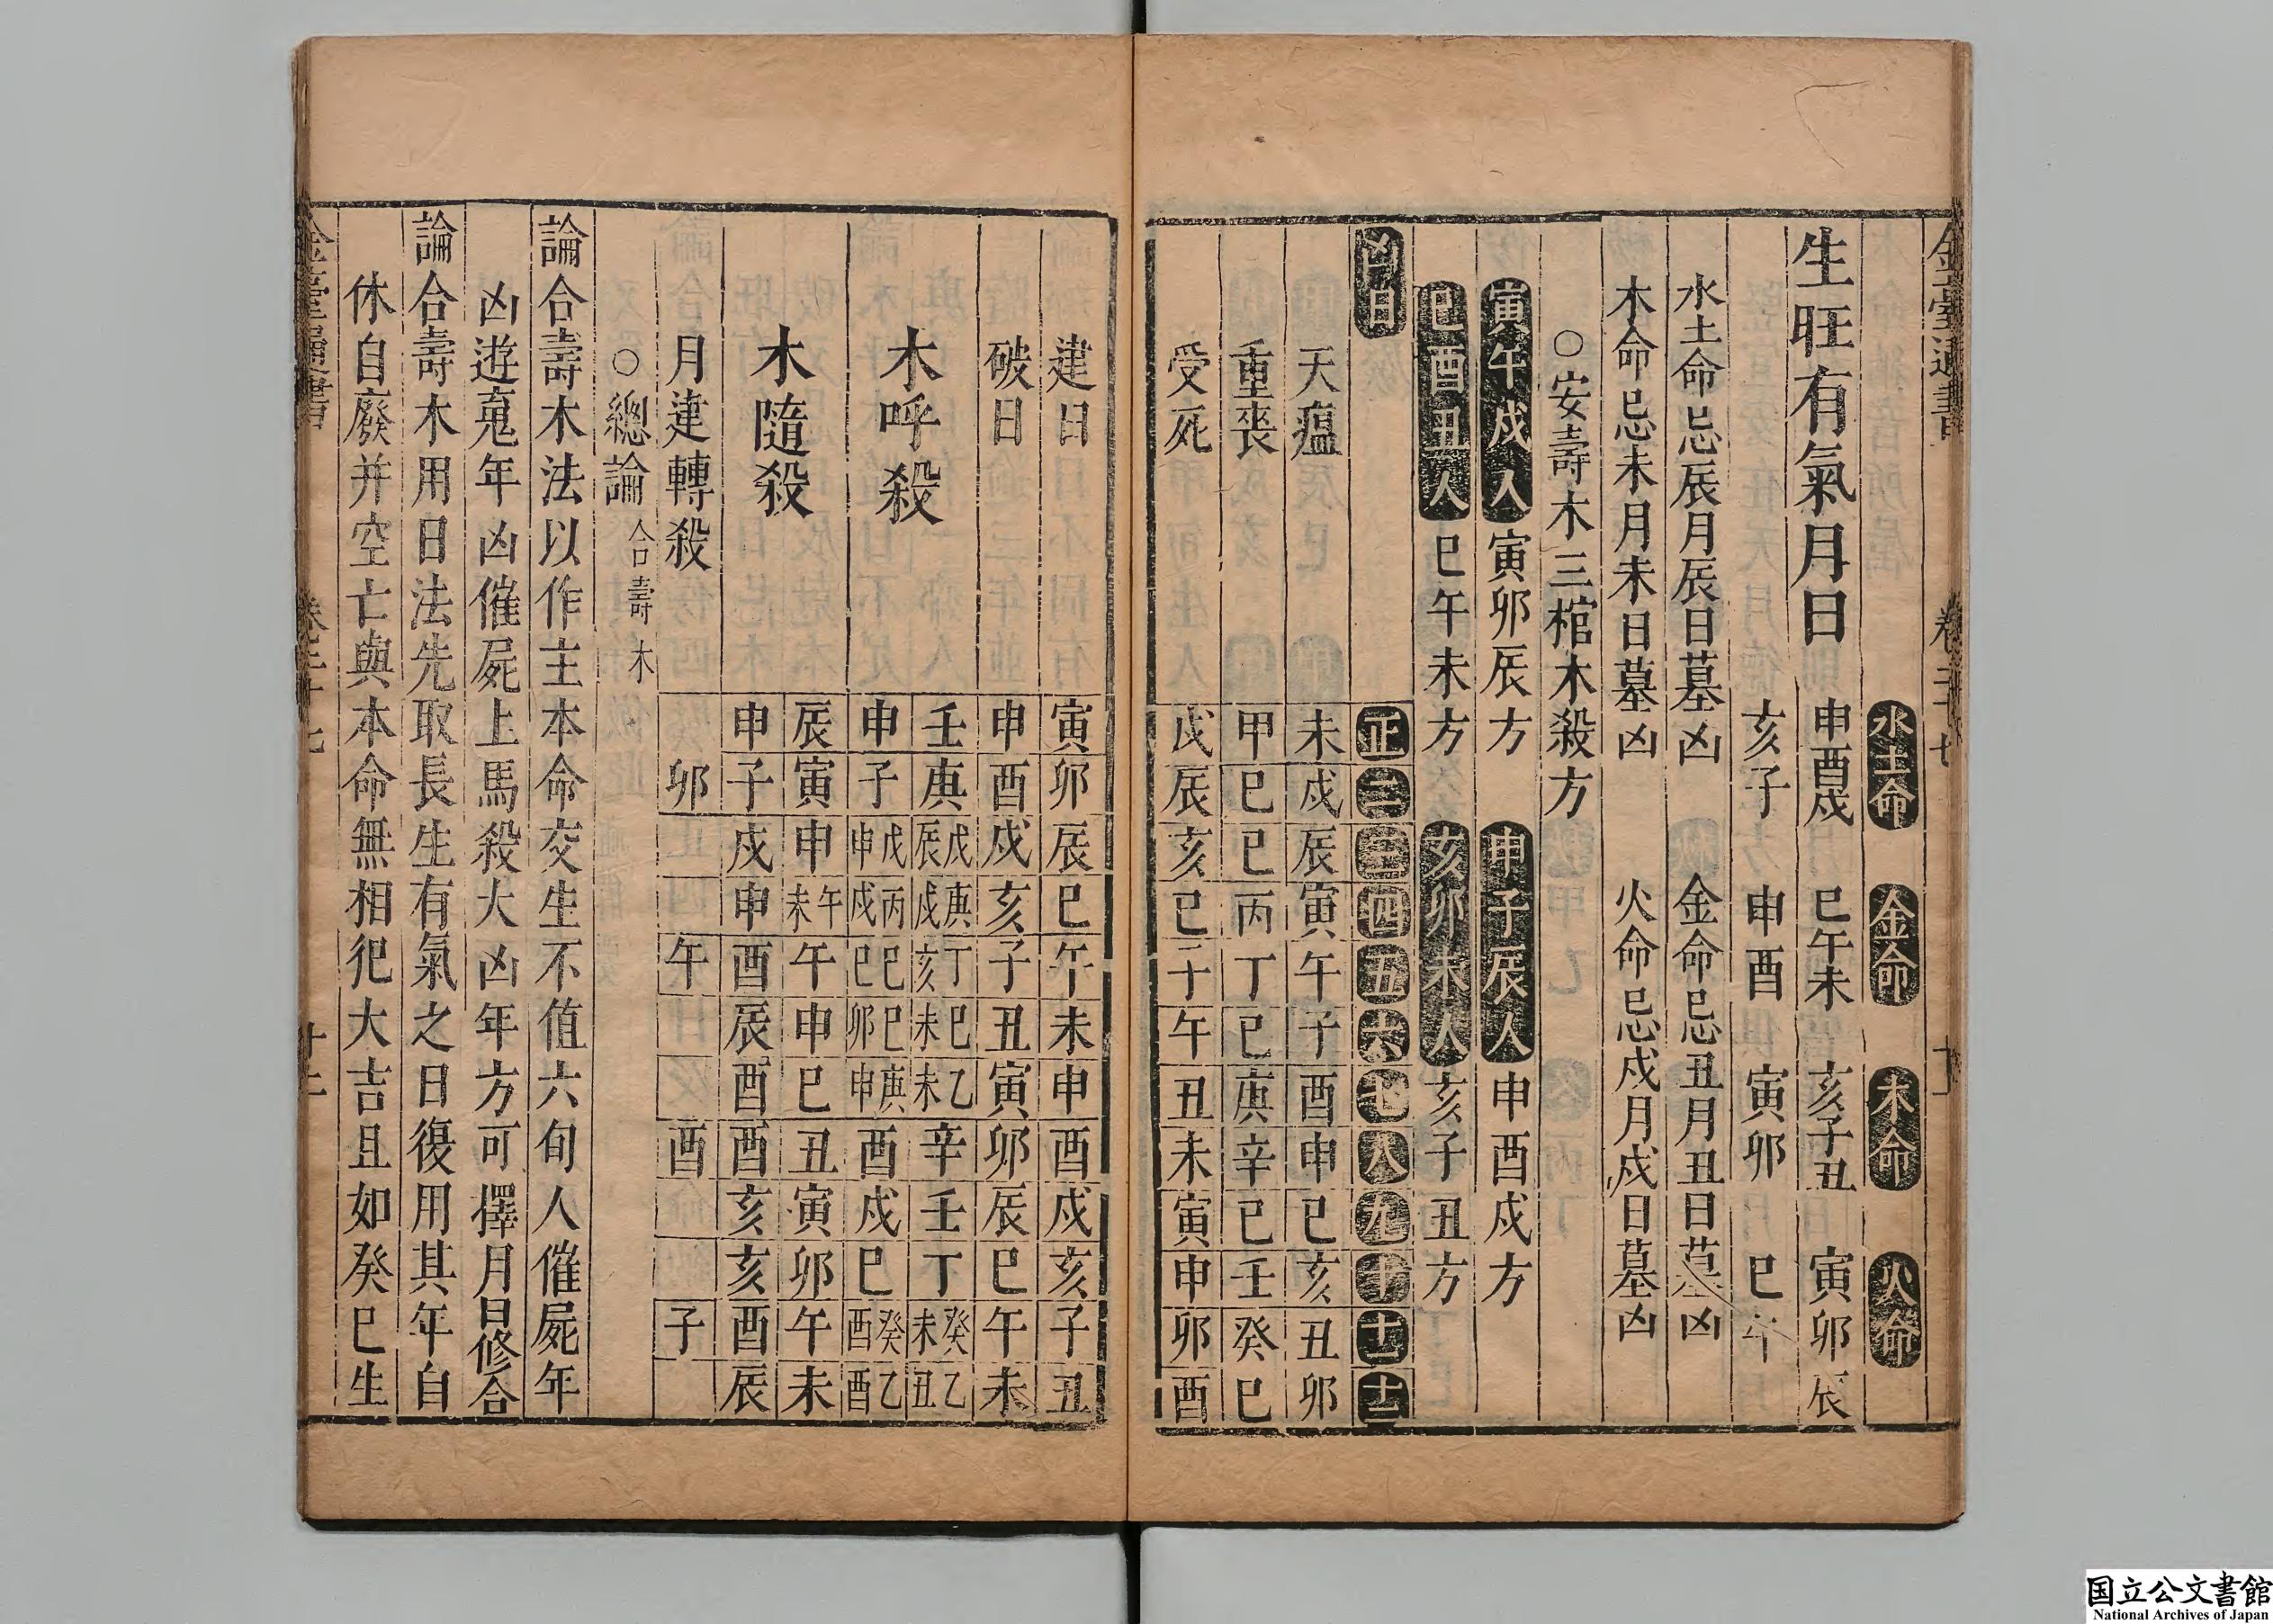 水土命 金命 木命 火命
生旺有氣月日 申酉戌 巳午未 亥子丑 寅卯辰
亥子 申酉 寅卯 巳午
水土命忌辰月辰日墓凶 金命忌丑月丑日墓凶
木命忌未月未日墓凶 火命忌戌月戌日墓凶
○安壽木三棺木殺方
寅午戌人寅卯辰方 申子辰人申酉戌方
巳酉丑人巳午未方 亥卯未人亥子丑方
凶日 正 二 三 四 五 六 七 八 九 十 十一 十二
天瘟 未 戌 辰 寅 午 子 酉 申 巳 亥 丑 卯
重喪 甲 乙 巳 丙 丁 巳 庚 辛 巳 壬 癸 巳
受死 戌 辰 亥 巳 子 午 丑 未 寅 申 卯 酉
建日 寅 卯 辰 巳 午 未 申 酉 戌 亥 子 丑
破日 申 酉 戌 亥 子 丑 寅 卯 辰 巳 午 未
木呼殺 壬 庚 戊辰 庚戌 丁亥 巳未 乙未 辛 壬 丁 癸未 乙丑
申 子 戊申 丙戌 巳巳 巳卯 庚申 酉 戌 巳 癸酉 乙酉
木隨殺 辰 寅 申 午未 午 申 巳 丑 寅 卯 午 未
申 子 戌 申 酉 辰 酉 酉 亥 亥 酉 辰
月建轉殺 卯 午 酉 子
○總論 合壽木
論合壽木法以作主本命交生不值六旬人催屍年
凶遊䰟年凶催屍上馬殺大凶年方可擇月日修合
論合壽木用日法先取長生有氣之日復用其年自
休自廢并空亡與本命無相犯大吉且如癸巳生
卷三十七